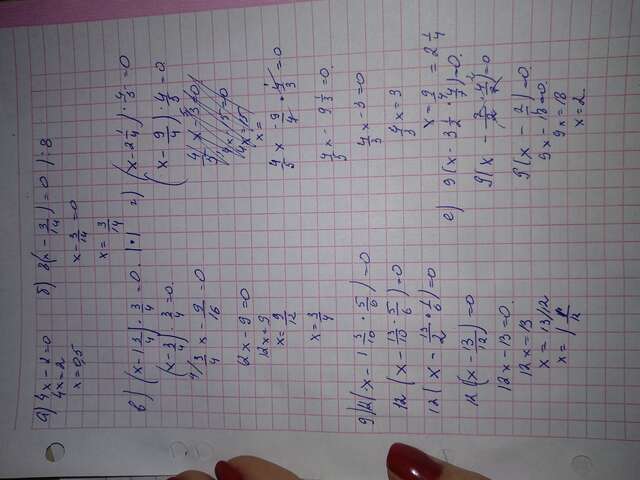 а) 4x - 2 = 0
4x = 2
x = 0,5
б) 8(x - 3/14) = 0 | : 8
x - 3/14 = 0
x = 3/14
в) (x - 1 3/4) · 3/4 = 0 |·|
(x - 3/4) · 3/4 = 0.
4/ 3/4 x - 9/16 = 0
12x - 9 = 0
12x = 9
x = 9/12
x = 3/4
г) (x - 2 1/4) · 4/5 = 0
(x - 9/4) · 4/5 = 0.
4x = 15
x =
4/5 x - 9/4 · 4/3 = 0
4/5 x - 9 1/3 = 0.
4/3 x - 3 = 0
4/3 x = 3
x = 9/4 = 2 1/4
12 (x - 13/10 · 5/6) = 0
12 (x - 13/2 · 1/6) = 0
12 (x - 13/12) = 0
12x - 13 = 0.
12x = 13
x = 13/12
x = 1 1/12
е) 9(x - 3 1/2 · 4/7) = 0.
9(x - 7/2 · 4/7) = 0
9(x - 2/1) = 0.
9x - 18 = 0.
9x = 18
x = 2